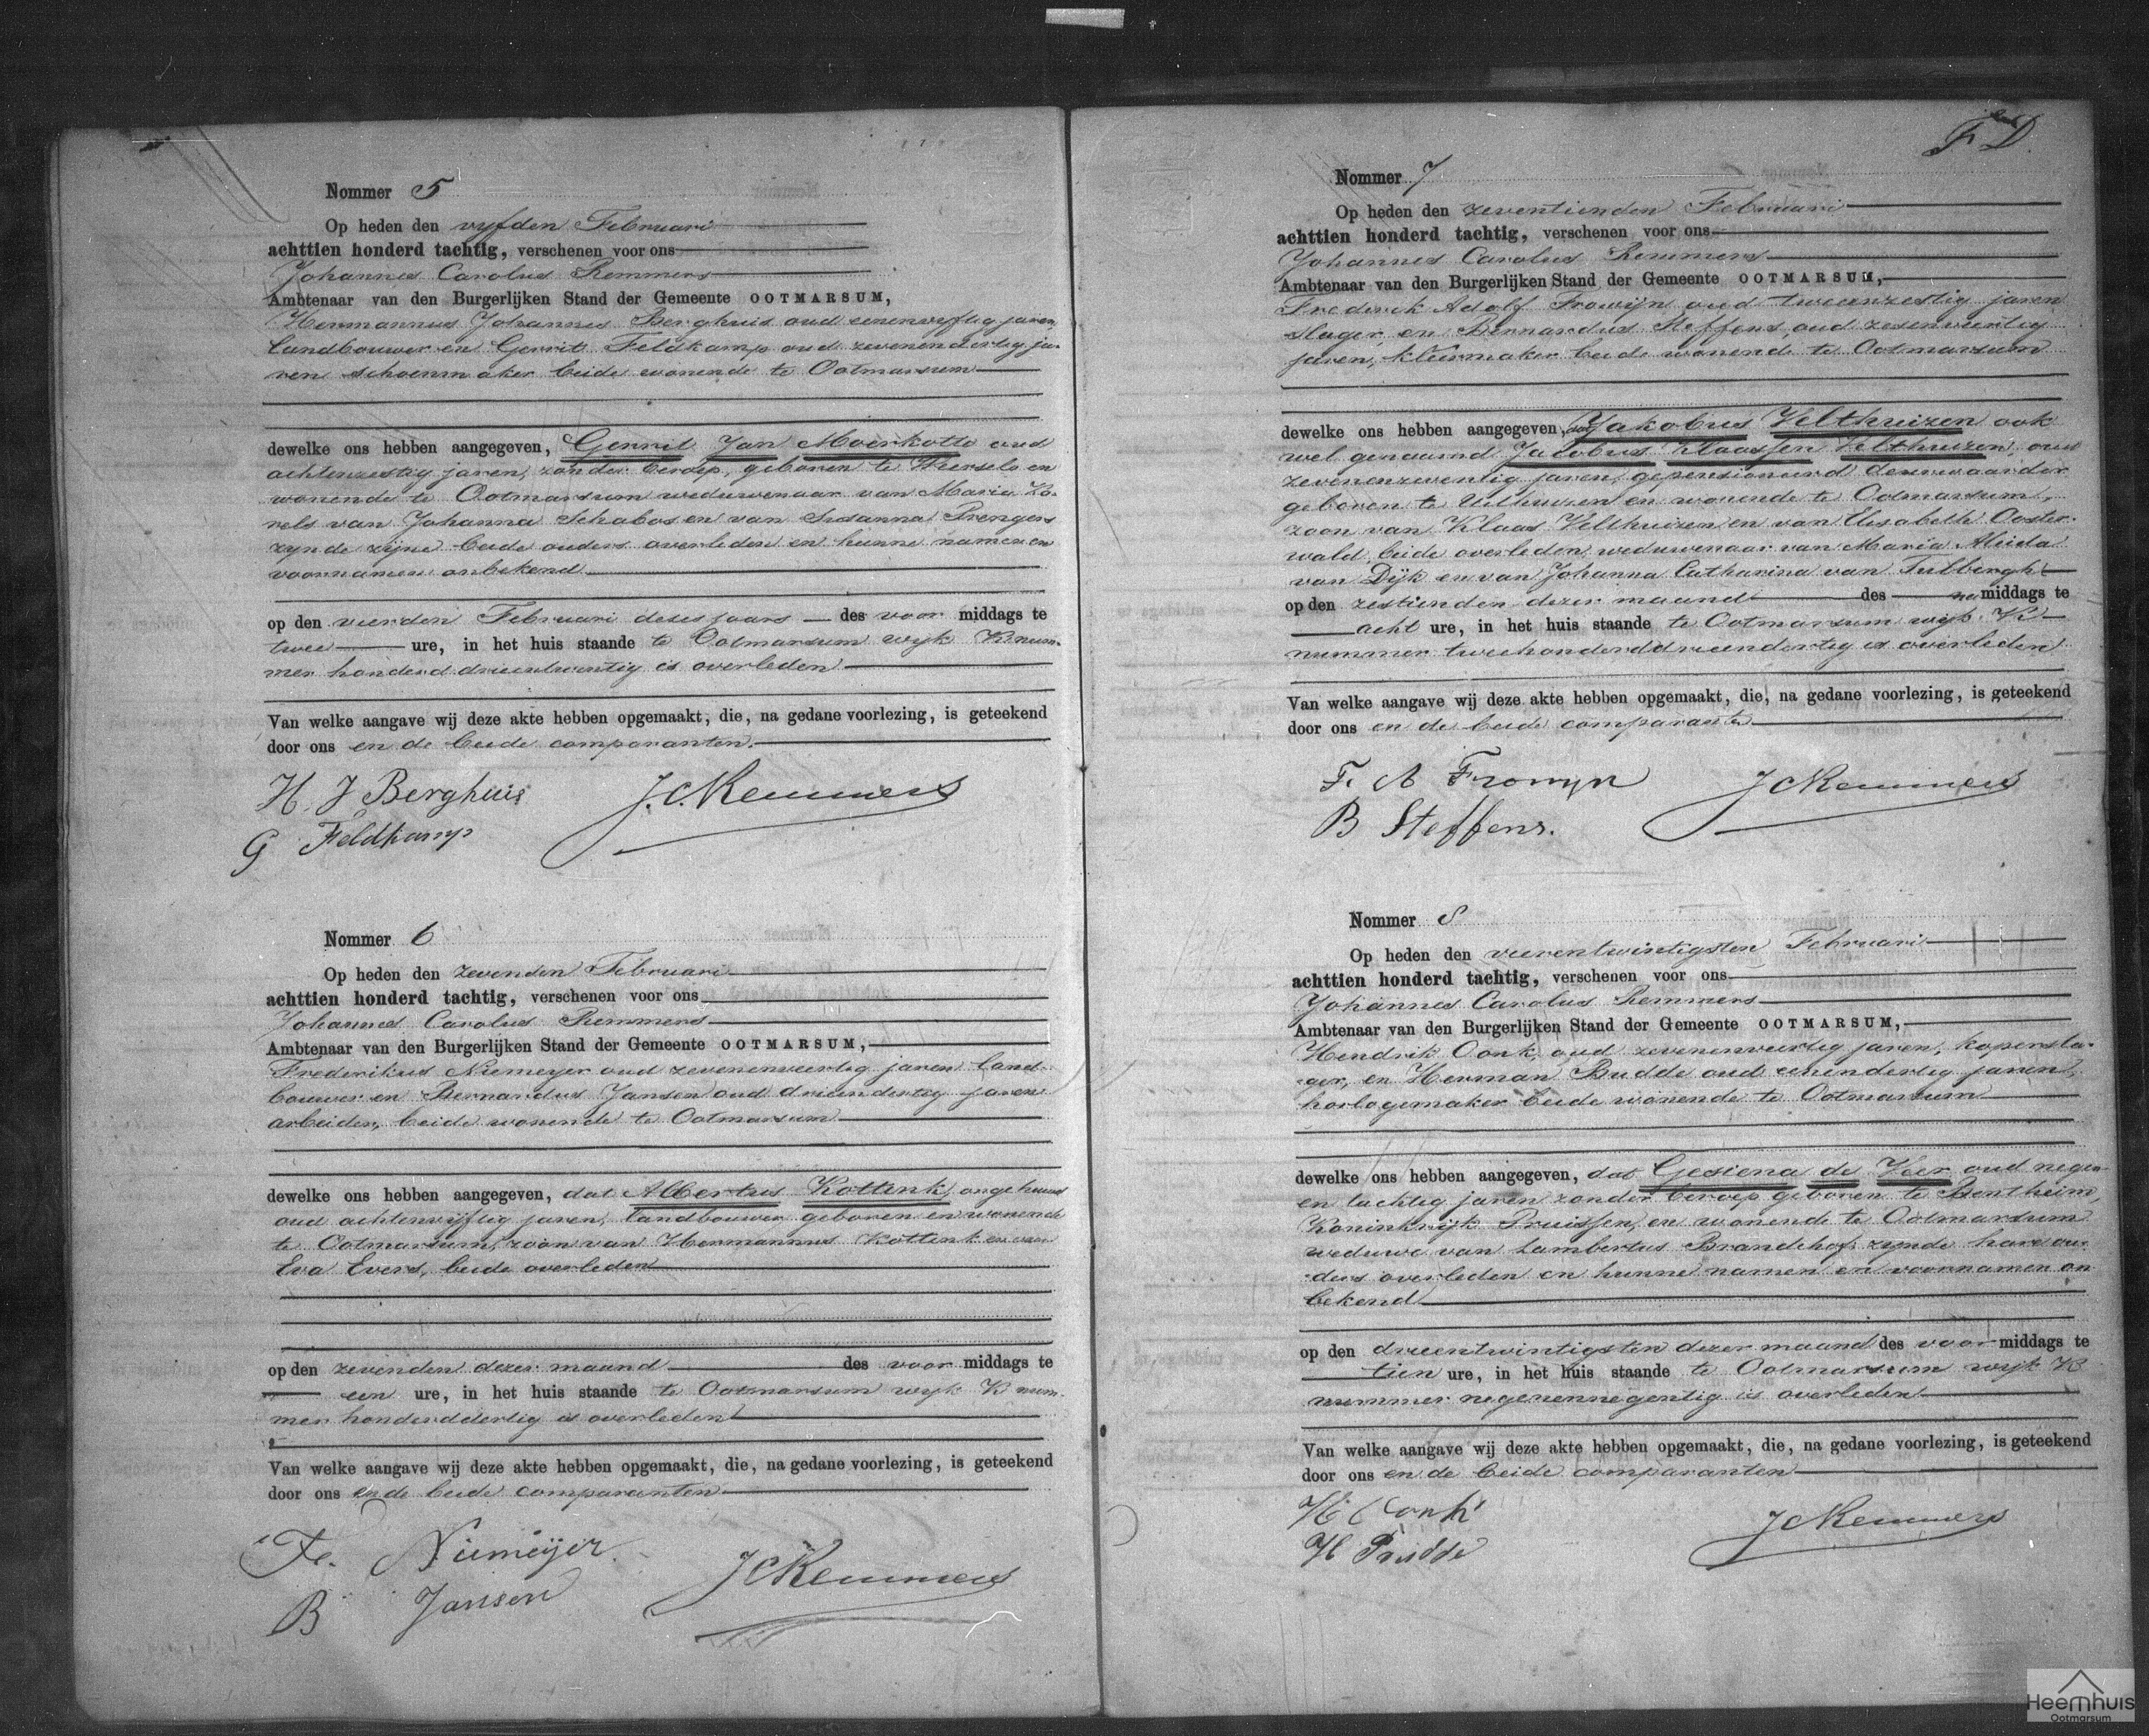 Nommer 5
Op heden den vyfden Februari
achttien honderd tachtig, verschenen voor ons
Johannes Carolus Remmers
Ambtenaar van den Burgerlijken Stand der Gemeente OOTMARSUM,
Hermannus Johannes Berghuis oud eenenvyftig jaren,
landbouwer en Gerrit Feldkamp oud zevenendertig ja-
ren schoenmaker beide wonende te Ootmarsum
dewelke ons hebben aangegeven, Gerrit Jan Moerkotte oud
achtenzestig jaren, zonder beroep, geboren te Wierselo en
wonende te Ootmarsum weduwenaar van Maria
van Johanna Schabos en van Susanna Prengers
zynde zijne beide ouders overleden en hunne namen en
voornamen onbekend
op den vierden Februari dezes jaars des voor middags te
twee ure, in het huis staande te Ootmarsum wyk B num-
mer honderd drieentwintig is overleden
Van welke aangave wij deze akte hebben opgemaakt, die, na gedane voorlezing, is geteekend
door ons en de beide comparanten.
H. J Berghuis J.C. Remmers
G Feldkamp
Nommer 6
Op heden den zevenden Februari
achttien honderd tachtig, verschenen voor ons
Johannes Carolus Remmers
Ambtenaar van den Burgerlijken Stand der Gemeente OOTMARSUM,
Frederikus Niemeyer oud zevenenveertig jaren land-
bouwer en Bernardus Jansen oud drieendertig jaren
arbeider, beide wonende te Ootmarsum
dewelke ons hebben aangegeven, dat Albertus Kottink, ongehuwd
oud achtenvijftig jaren, landbouwer geboren en wonende
te Ootmarsum, zoon van Hermannus Kottink en van
Eva Evers, beide overleden
op den zevenden dezer maand des voor middags te
een ure, in het huis staande te Ootmarsum wyk B num-
mer honderddertig is overleden
Van welke aangave wij deze akte hebben opgemaakt, die, na gedane voorlezing, is geteekend
door ons en de beide comparanten
Fr. Niemeijer
B Jansen JCRemmers
F D.
Nommer 7
Op heden den zeventienden Februari
achttien honderd tachtig, verschenen voor ons
Johannes Carolus Remmers
Ambtenaar van den Burgerlijken Stand der Gemeente OOTMARSUM,
Frederik Adolf Frowijn oud tweeenzestig jaren
slager en Bernardus Steffens, oud zesenveertig
jaren, kleermaker beide wonende te Ootmarsum
dewelke ons hebben aangegeven, dat Jakobus Velthuizen ook
wel genaamd Jacobus Klaassen Velthuizen, oud
zevenenzeventig jaren, gepensioneerd deurwaarder
geboren te Uithuizen en wonende te Ootmarsum,
zoon van Klaas Velthuizen en van Elisabeth Ooster-
wald, beide overleden, weduwenaar van Maria Aleida
van Dijk en van Johanna Catharina van Tulbergh
op den zestienden dezer maand des na middags te
acht ure, in het huis staande te Ootmarsum wijk B
nummer tweehonderddrieendertig is overleden
Van welke aangave wij deze akte hebben opgemaakt, die, na gedane voorlezing, is geteekend
door ons en de beide comparanten
F. A Frowyn JCRemmers
B Steffens.
Nommer 8
Op heden den vierentwintigsten Februari
achttien honderd tachtig, verschenen voor ons
Johannes Carolus Remmers
Ambtenaar van den Burgerlijken Stand der Gemeente OOTMARSUM,
Hendrik Oonk, oud zevenenveertig jaren, kopersla-
ger, en Herman Budde oud eenendertig jaren,
horlogemaker beide wonende te Ootmarsum
dewelke ons hebben aangegeven, dat Gesiena de Veer oud negen
en tachtig jaren zonder beroep geboren te Bentheim,
Koninkrijk Pruissen, en wonende te Ootmarsum
weduwe van Lambertus Brandehof zynde hare ou-
ders overleden en hunne namen en voornamen on
bekend
op den drieentwintigsten dezer maand des voor middags te
tien ure, in het huis staande te Ootmarsum wijk B
nummer negenennegentig is overleden
Van welke aangave wij deze akte hebben opgemaakt, die, na gedane voorlezing, is geteekend
door ons en de beide comparanten
H Oonk JCRemmers
H Budde
Heemhuis
Ootmarsum